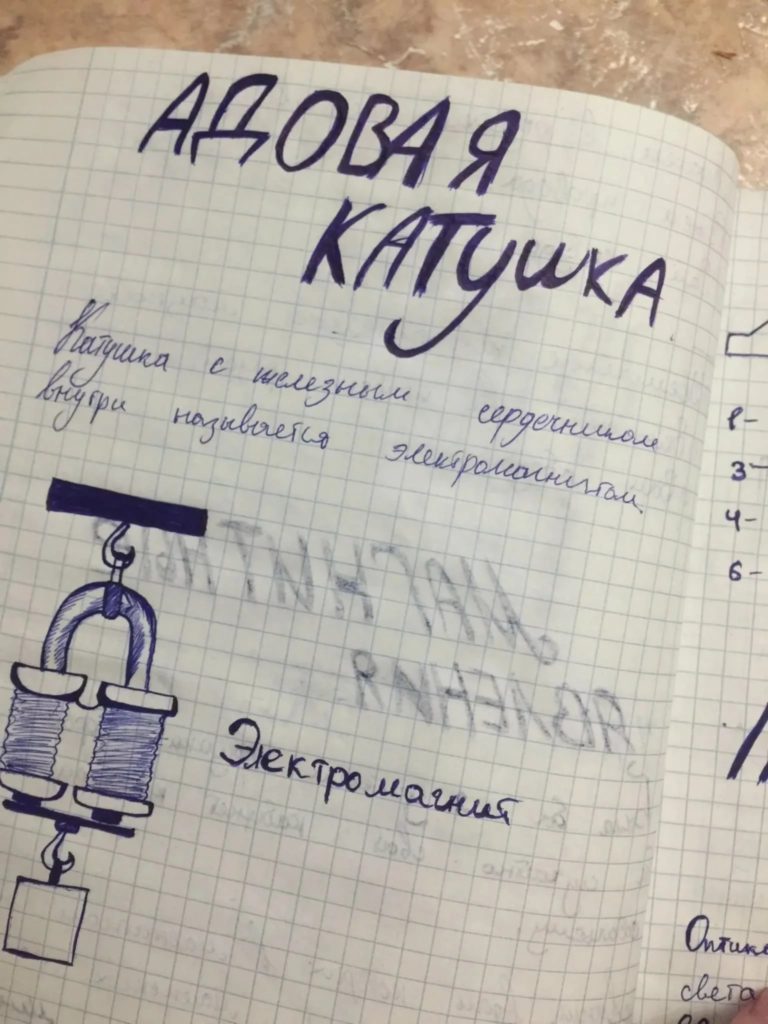 АДОВАЯ
КАТУШКА
Катушка с железным сердечником
внутри называется электромагнитом.
МАГНИТНЫЕ
ЯВЛЕНИЯ
Электромагнит
1-
3-
4-
6-
Оптика
света